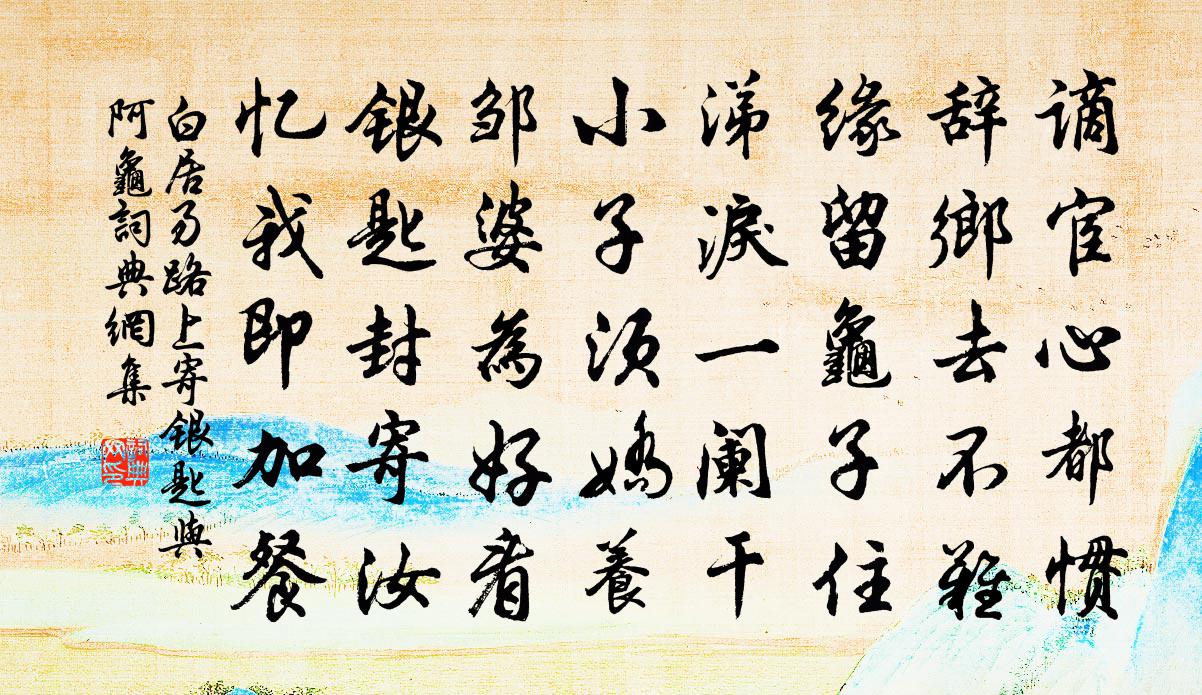 谪宦心都惯
辞鄉去不難
缘留龜子住
涕淚一阑干
小子须嬌養
邹婆為好看
银匙封寄汝
忆我即加餐
白居易路上寄银匙與
阿龜詞典網集